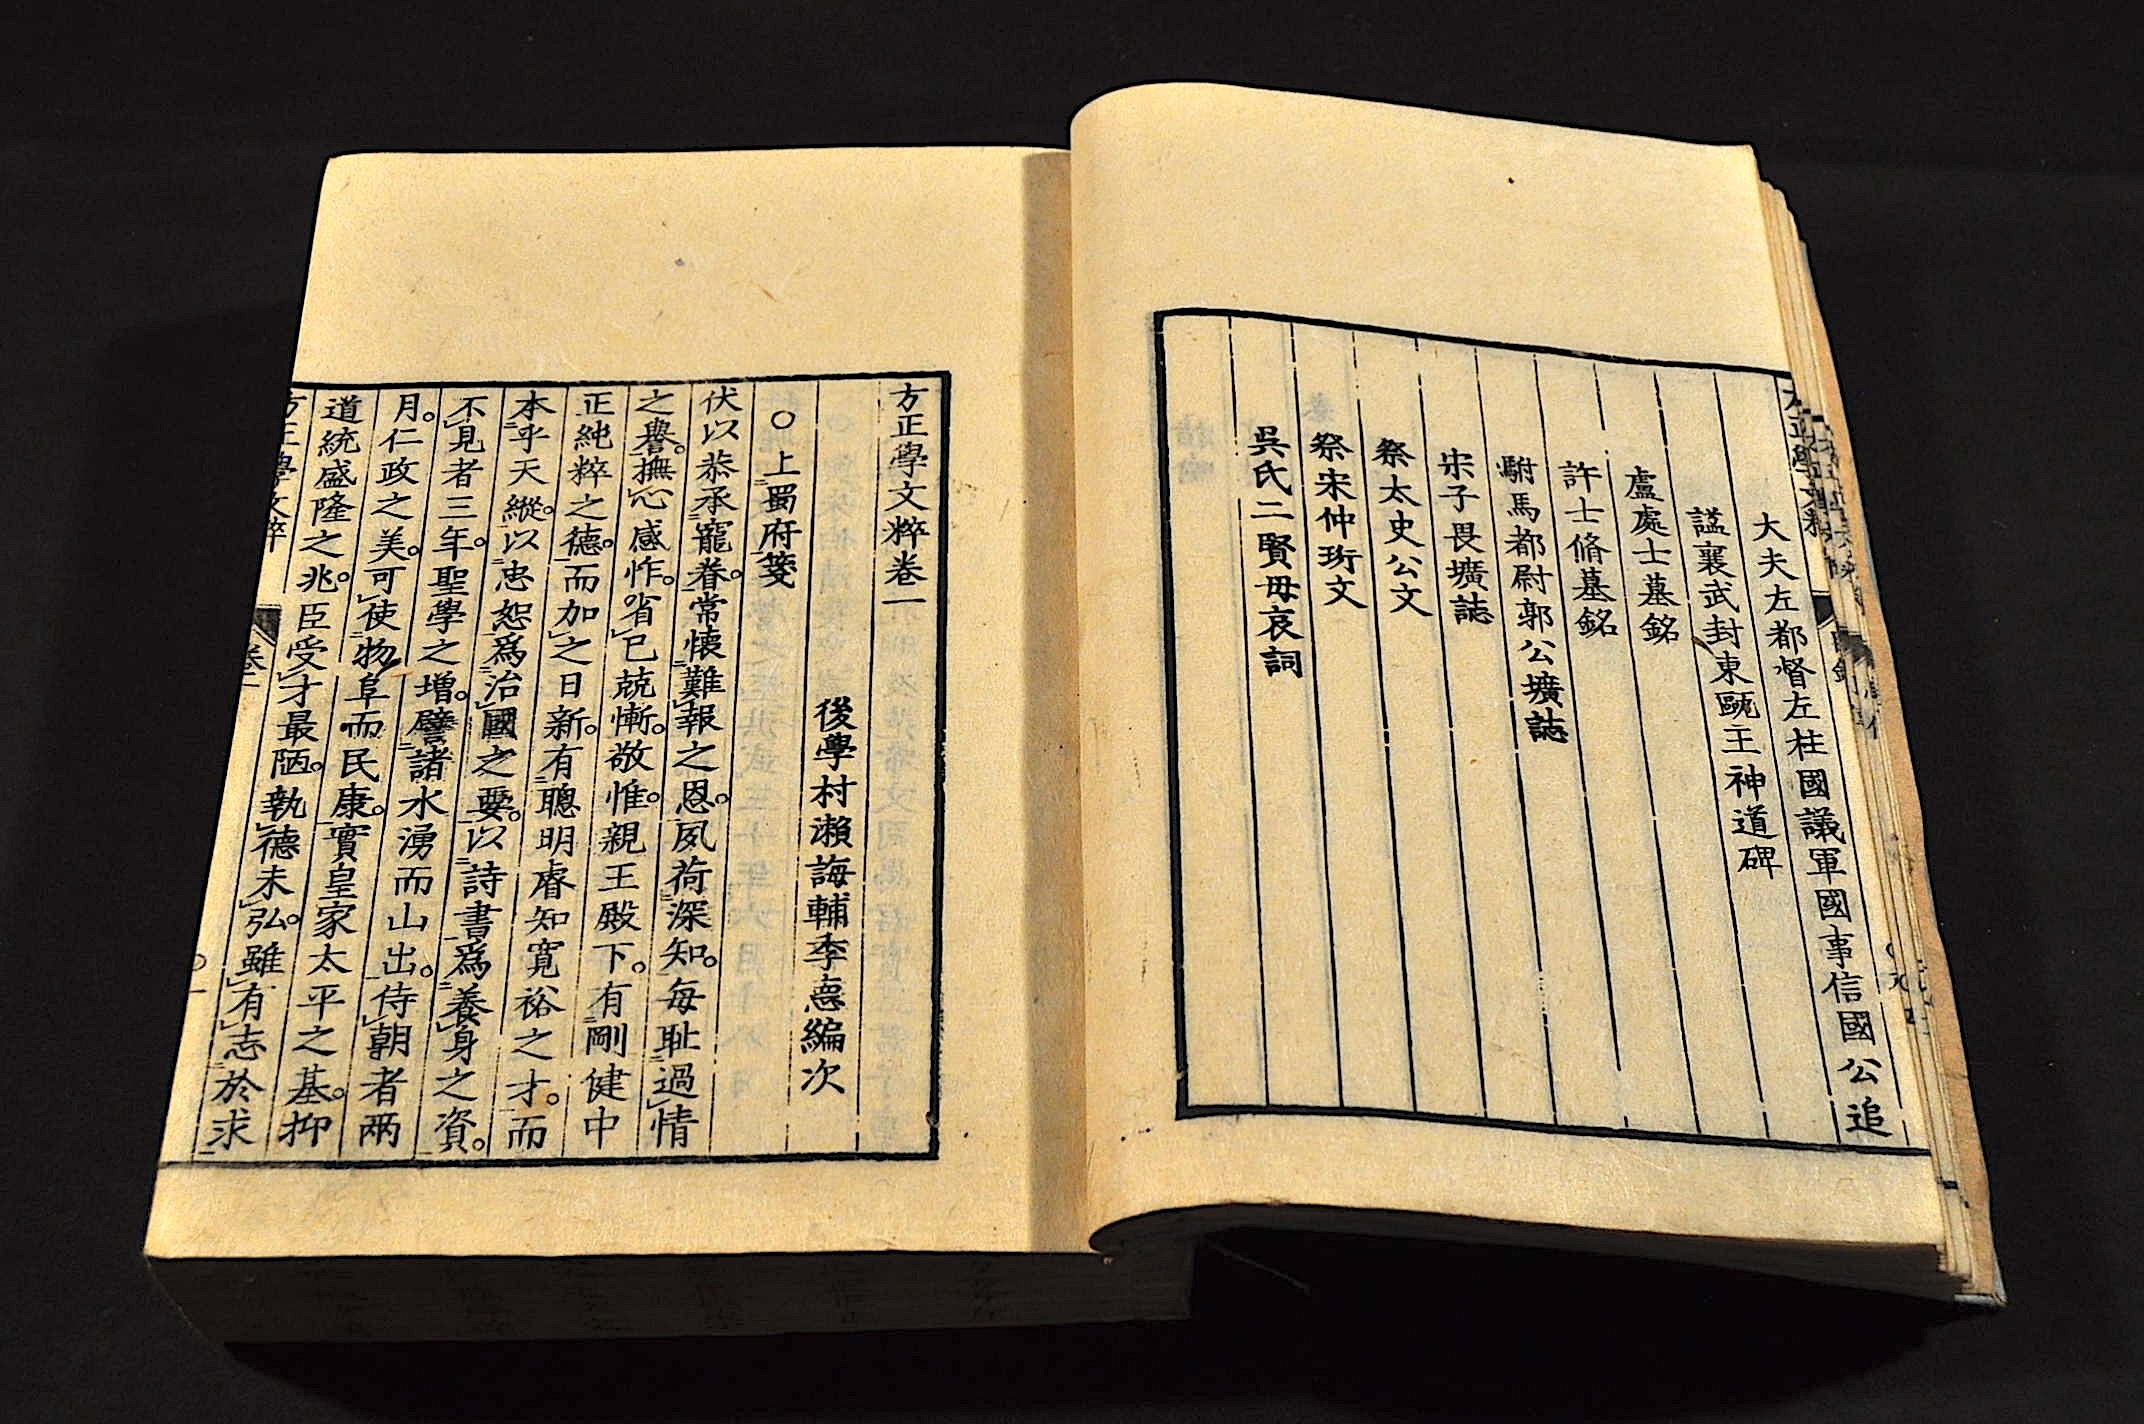 大夫左都督左柱國議軍國事信國公追
諡襄武封東甌王神道碑
盧處士墓銘
許士脩墓銘
駙馬都尉郭公壙誌
宋子畏壙誌
祭太史公文
祭宋仲珩文
吳氏二賢母哀詞
方正學文粹卷一
後學村瀨誨輔季德編次
○上蜀府箋
伏以恭承寵眷。常懷難報之恩。夙荷深知。每耻過情
之譽。撫心感怍。省已兢慚。敬惟。親王殿下。有剛健中
正純粹之德。而加之日新。有聰明睿知寬裕之才。而
本乎天縱。以忠恕爲治國之要。以詩書爲養身之資。
不見者三年。聖學之增。譬諸水湧而山出。侍朝者兩
月。仁政之美。可使物阜而民康。實皇家太平之基。抑
道統盛隆之兆。臣受才最陋。執德未弘。雖有志於求
方正學文粹
卷一